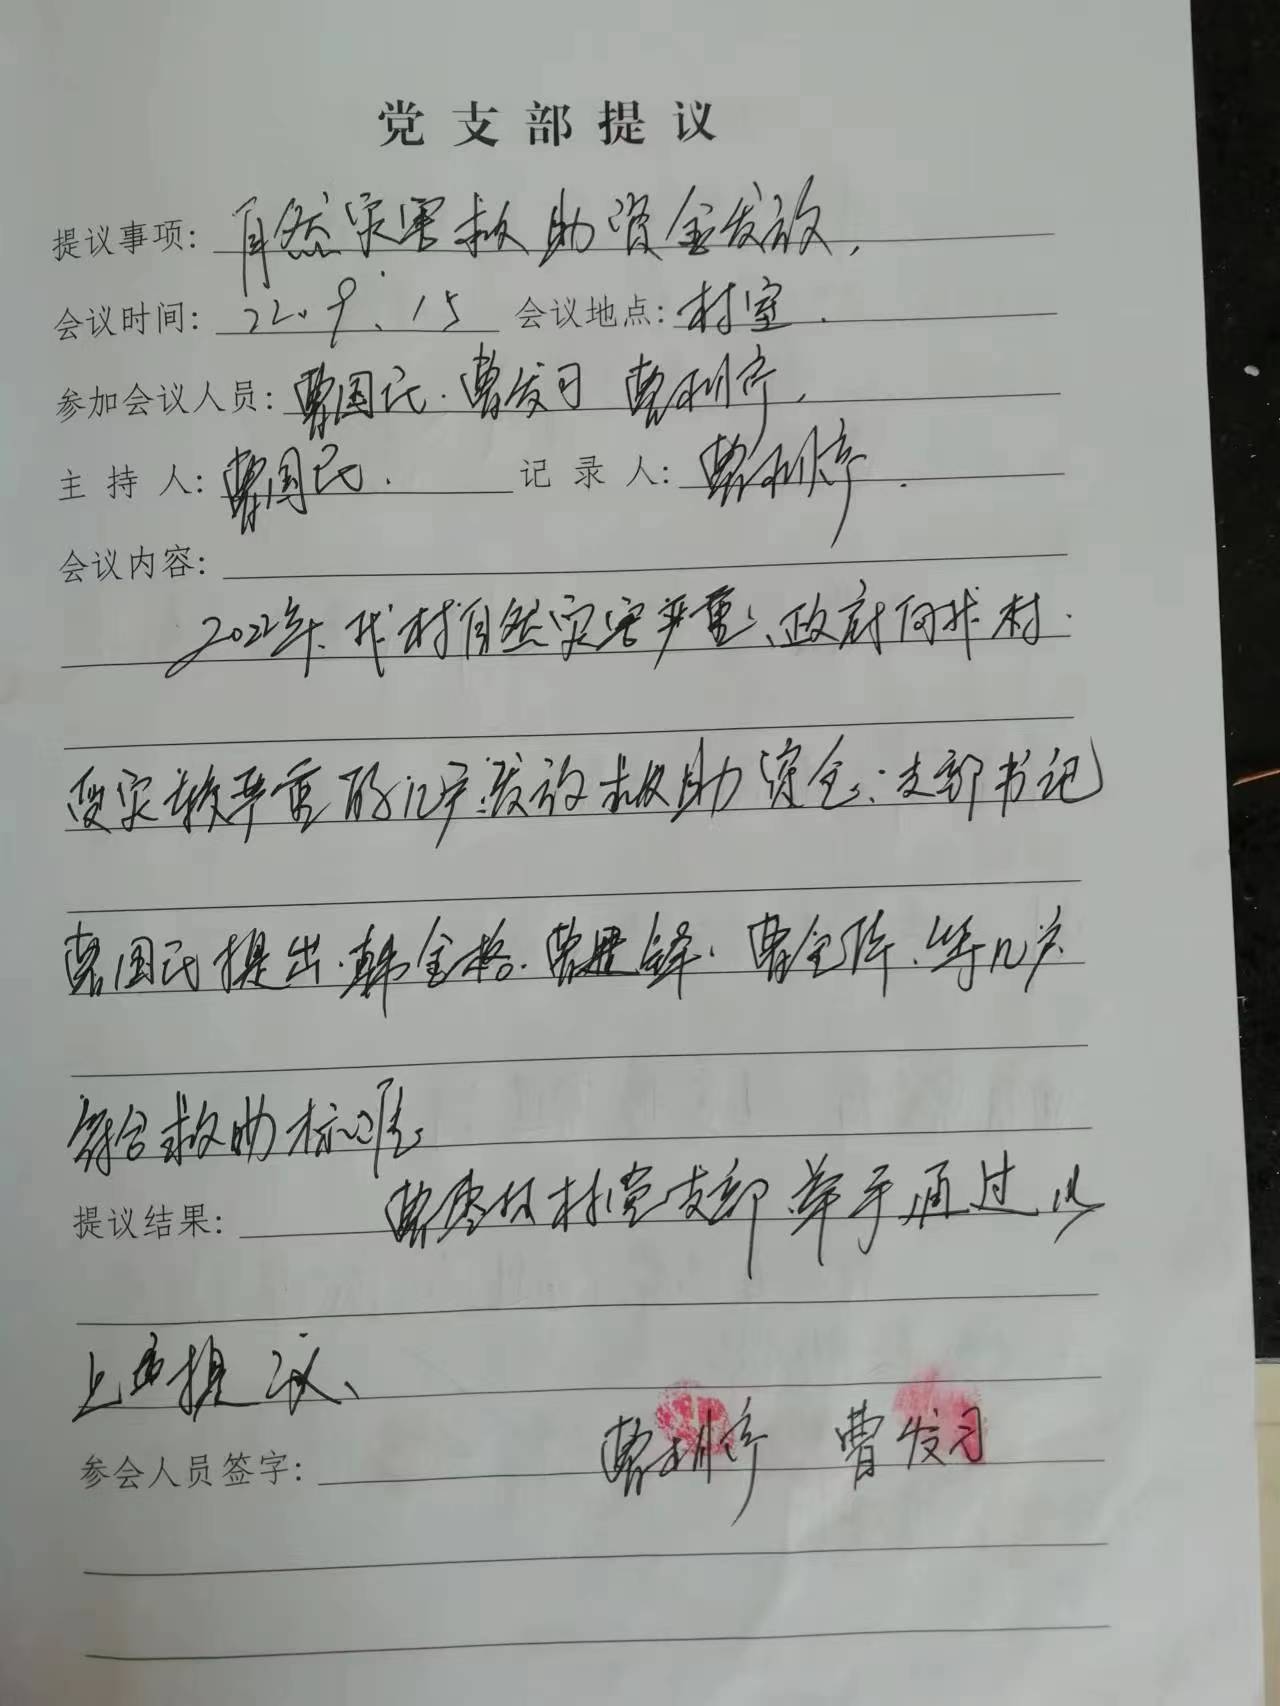 党支部提议
提议事项: 自然灾害救助资金发放,
会议时间: 22.9.15 会议地点: 村室.
参加会议人员: 曹国民. 曹发习 曹
主持人: 曹国民. 记录人: 曹
会议内容:
2022年、我村自然灾害严重、政府向我村.
受灾较严重的几户发放救助资金: 支部书记
曹国民提出. 韩金格. 曹 锋. 曹金阵、等几户
符合救助标准。
提议结果: 曹 村党支部举手通过以
上述提议、
参会人员签字: 曹 曹发习